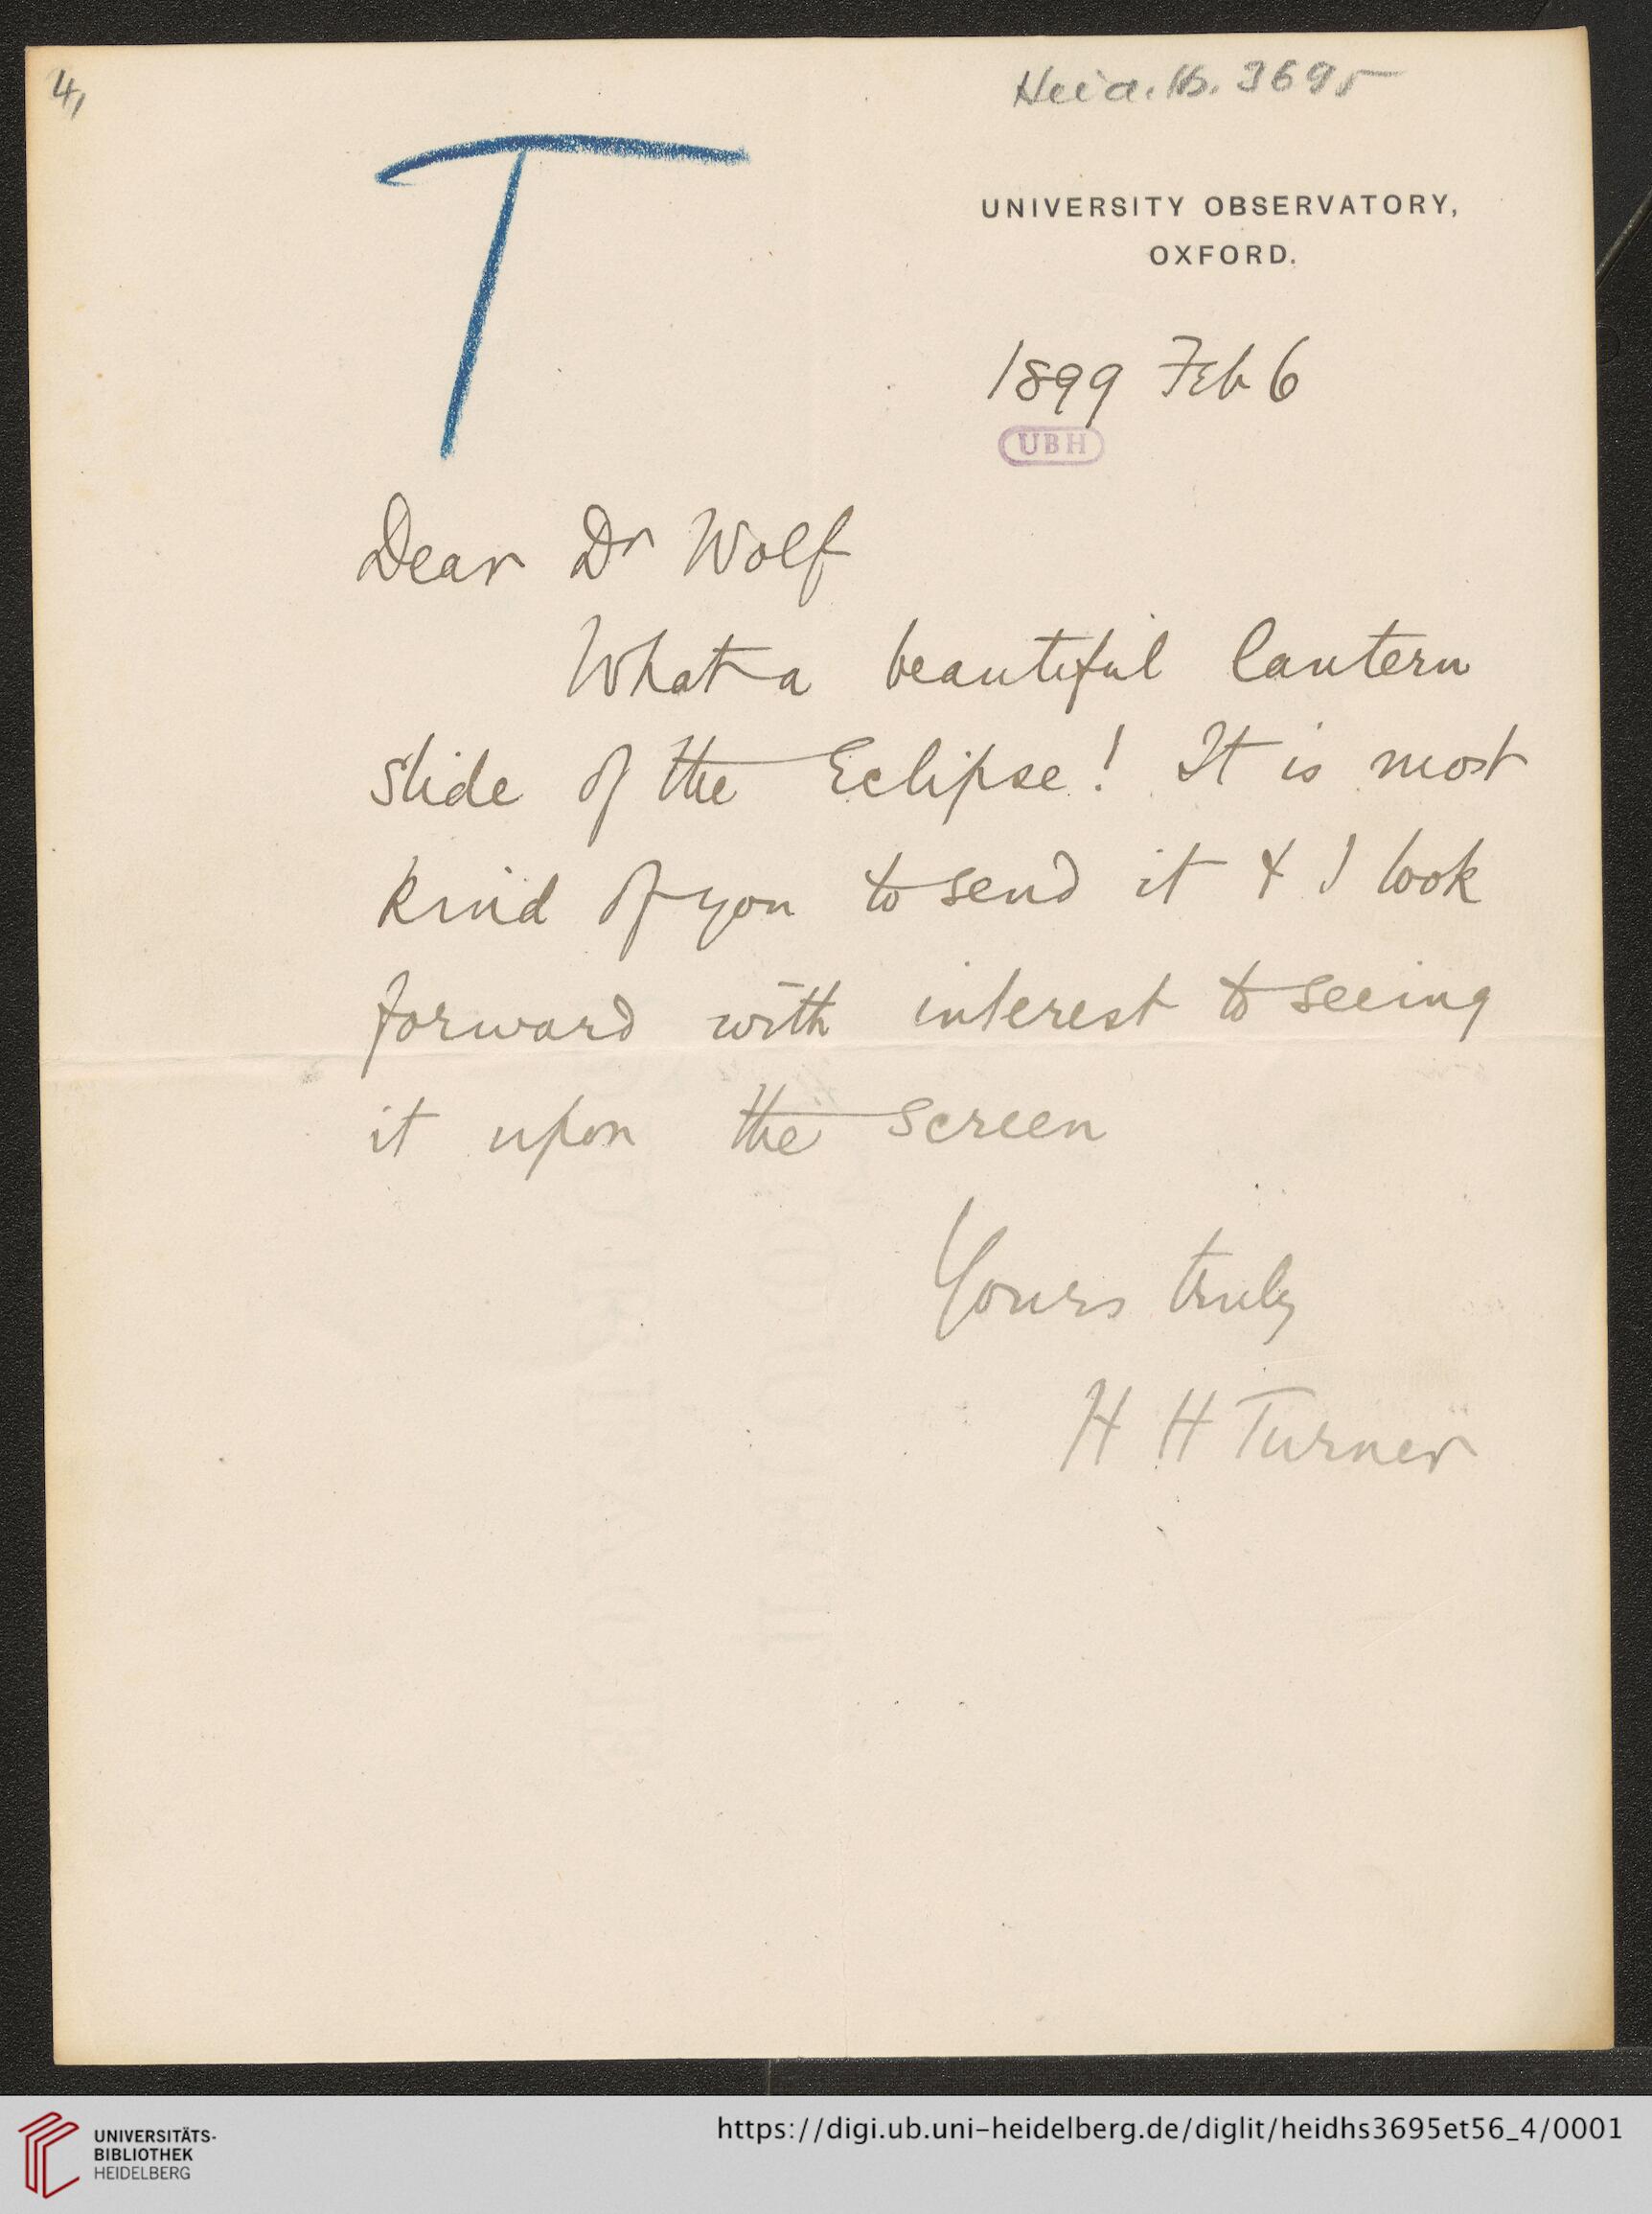 4,
Heid. Hs. 3695
T
UNIVERSITY OBSERVATORY,
OXFORD.
1899 Feb 6
UBH
Dear Dr Wolf
What a beautiful lantern
slide of the Eclipse! It is most
kind of you to send it & I look
forward with interest to seeing
it upon the screen
Yours truly
H H Turner
UNIVERSITÄTS-
BIBLIOTHEK
HEIDELBERG
https://digi.ub.uni-heidelberg.de/diglit/heidhs3695et56_4/0001